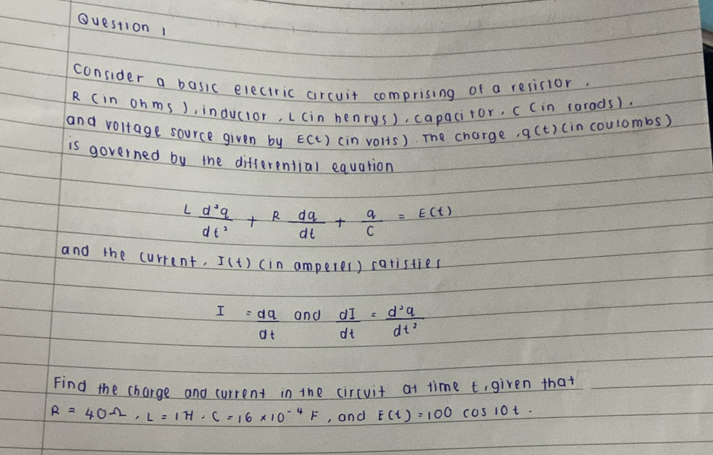 Question 1
Consider a basic electric circuit comprising of a resistor,
R (in ohms), inductor, L (in henrys), capacitor, C (in farads),
and voltage source given by E(t) (in volts). The charge, q(t) (in coulombs)
is governed by the differential equation
L d²q/dt² + R dq/dt + q/C = E(t)
and the current, I(t) (in amperes) satisfies
I = dq/dt and dI/dt = d²q/dt²
Find the charge and current in the circuit at time t, given that
R = 40Ω, L = 1H, C = 16 × 10⁻⁴ F, and E(t) = 100 cos 10t.